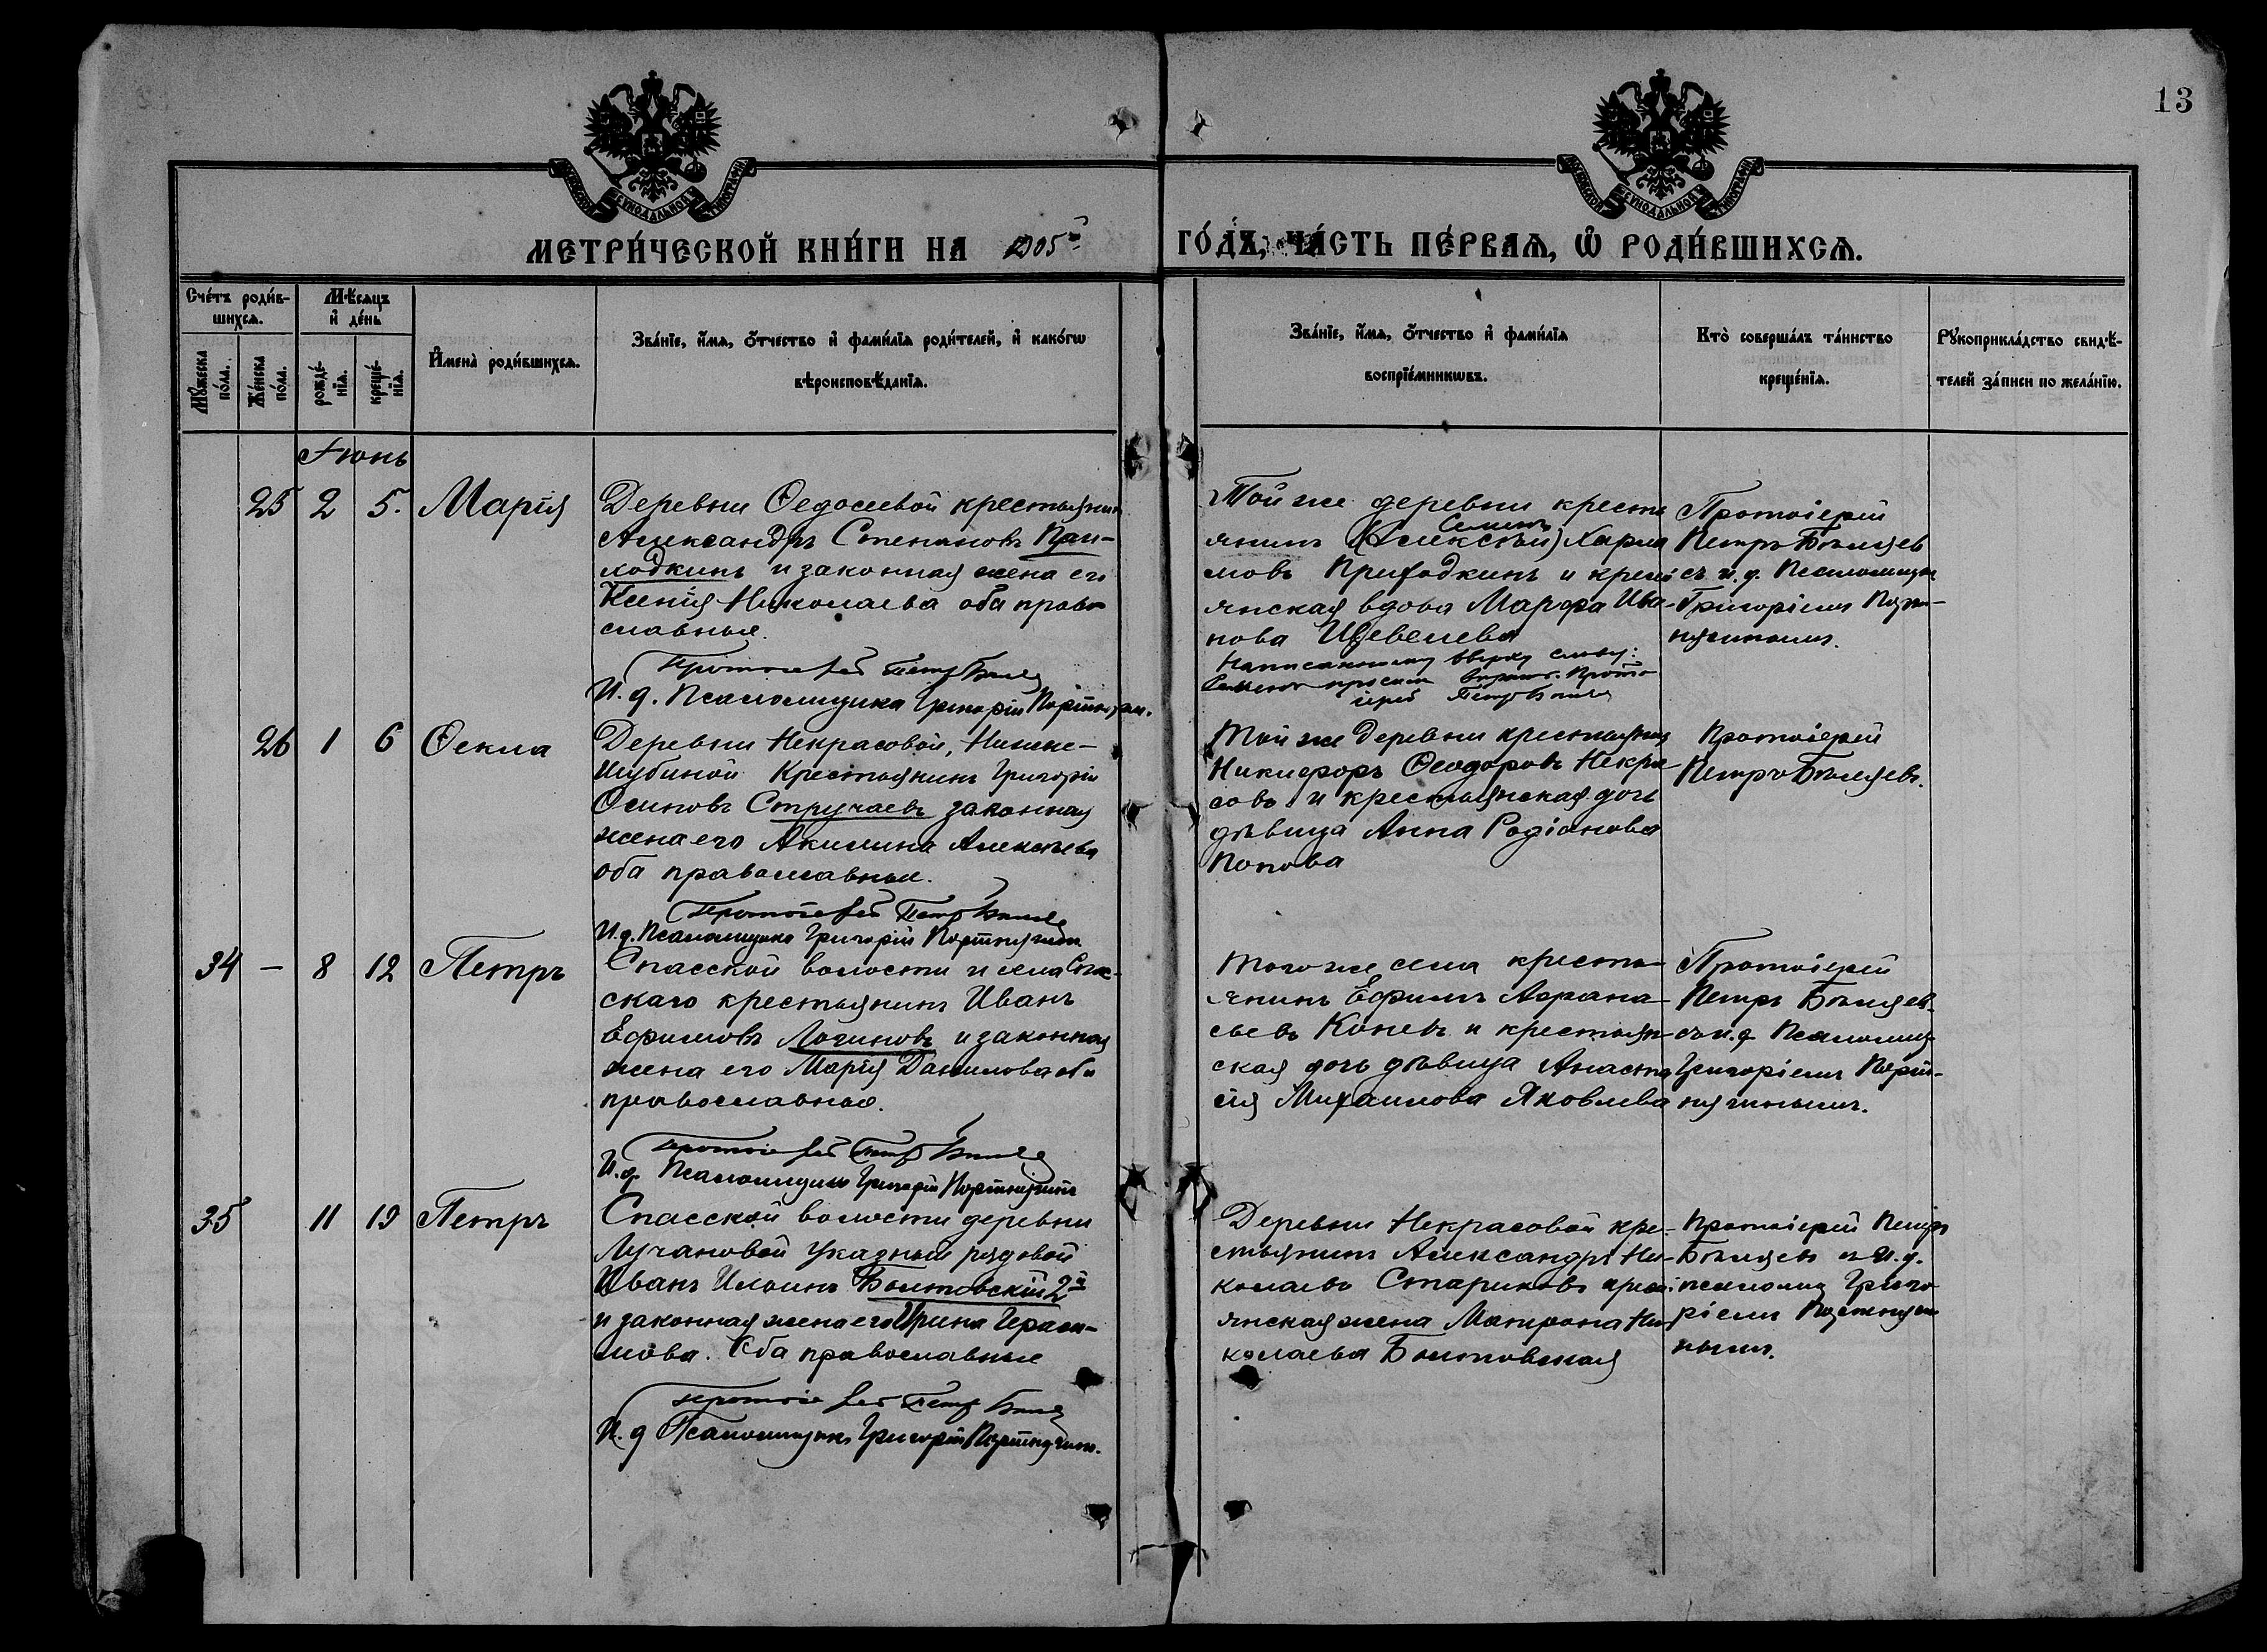 13
МОСКОВСКОЙ СѴНОДАЛЬНОЙ ТИПОГРАФІИ
МОСКОВСКОЙ СѴНОДАЛЬНОЙ ТИПОГРАФІИ
МЕТРИ́ЧЕСКОЙ КНИ́ГИ НА 1905й ГО́ДЪ, ЧА́СТЬ ПЕ́РВАѦ, Ѡ҆ РОДИ́ВШИХСѦ.
Сче́тъ роди́в-
шихсѧ.
Мꙋ́жеска
по́ла.
Же́нска
по́ла.
Мѣ́сѧцъ
и҆ де́нь
рожде́-
нїѧ.
креще́-
нїѧ.
И҆мена̀ роди́вшихсѧ.
Зва́нїе, и҆́мѧ, ѻ҆́тчество и҆ фами́лїѧ роди́телей, и҆ како́гѡ
вѣроисповѣ́данїѧ.
Зва́нїе, и҆́мѧ, ѻ҆́тчество и҆ фами́лїѧ
воспрїе́мникѡвъ.
Кто̀ соверша́лъ та́инство
креще́нїѧ.
Рꙋкоприкла́дство свидѣ́-
телей за́писи по жела́нїю.
Іюнь
25 2 5. Марія
Деревни Ѳедосеевой крестьянинъ
Александръ Степановъ При-
ходкинъ и законная жена его
Ксенія Николаева оба право
славные.
Протоіерей Петръ Бѣляевъ
И. д. Псаломщика Григорій Портнягин.
Той же деревни кресть
Семенъ
янинъ (Алексѣй) Харла
мовъ Приходкинъ и крест
янская вдова Марфа Ива-
нова Шевелева
Написанному вверху слову:
Семенъ просим вѣрит. Прото
іерей Петръ Бѣляев
Протоіерей
Петръ Бѣляев
съ и. д. Псаломщик
Григоріем Порт-
нягинымъ.
26 1 6 Ѳекла
Деревни Некрасовой, Нижне-
Шубиной Крестьянинъ Григорій
Осиповъ Стручаевъ законная
жена его Акилина Алексѣева
оба православные.
Протоіерей Петръ Бѣляев
И. д. Псаломщика Григорій Портнягин
Той же деревни крестьянинъ
Никифоръ Ѳеодоровъ Некра
совъ и крестьянская дочь
дѣвица Анна Родіонова
Попова
Протоіерей
Петръ Бѣляевъ.
34 — 8 12 Петръ
Спасской волости и села Спас-
скаго крестьянинъ Иванъ
Ефимовъ Логиновъ и законная
жена его Марія Данилова оба
православные.
Протоіерей Петръ Бѣляев
И. д. Псаломщика Григорій Портнягинъ
Того же села кресть-
янинъ Ефимъ Афана-
сьевъ Коневъ и крестьян-
ская дочь дѣвица Анаста
сія Михаилова Яковлева
Протоіерей
Петръ Бѣляев.
съ и. д. Псаломщ
Григоріемъ Порт-
нягинымъ.
35 11 19 Петръ
Спасской волости деревни
Лучановой Указный рядовой
Иванъ Ильинъ Болтовскій 2й
и законная жена его Ирина Гераси-
мова. Оба православные
Протоіерей Петръ Бѣляев
И. д Псаломщика Григорій Портнягин.
Деревни Некрасовой кре-
стьянинъ Александръ Ни-
колаевъ Стариковъ крест
янская жена Матрона Ни
колаева Болтовская
Протоіерей Петръ
Бѣляевъ съ И. д.
псаломщ Григо
ріемъ Портняги
нымъ.